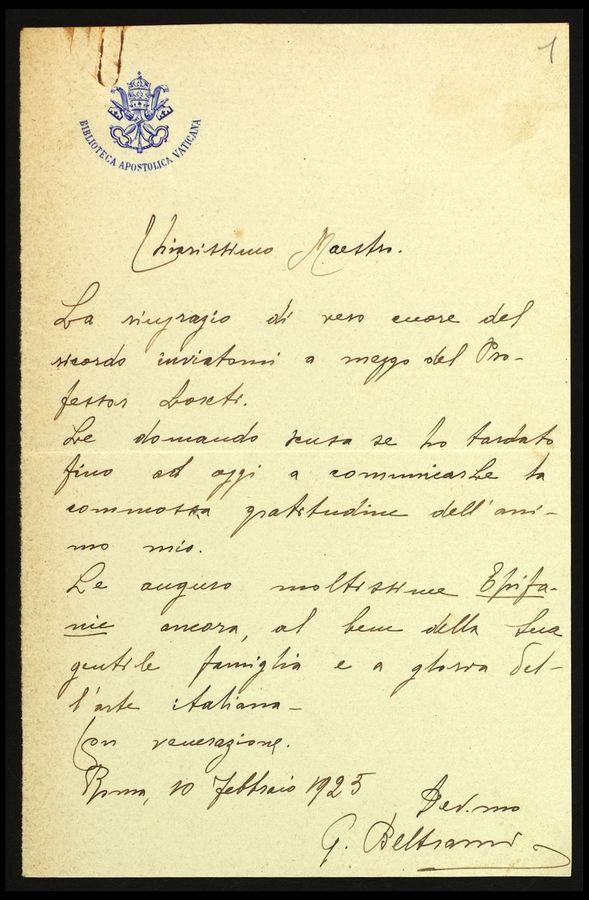 1
BIBLIOTECA APOSTOLICA VATICANA
Chiarissimo Maestro.
La ringrazio di vero cuore del
ricordo inviatomi a mezzo del Pro-
fessor
Le domando scusa se ho tardato
fino ad oggi a comunicarLe la
commossa gratitudine dell'ani-
mo mio.
Le auguro moltissime Epifa-
nie ancora, al bene della Sua
gentile famiglia e a gloria del-
l'arte italiana -
Con venerazione.
Roma, 10 febbraio 1925
Dev.mo
G. Beltrami